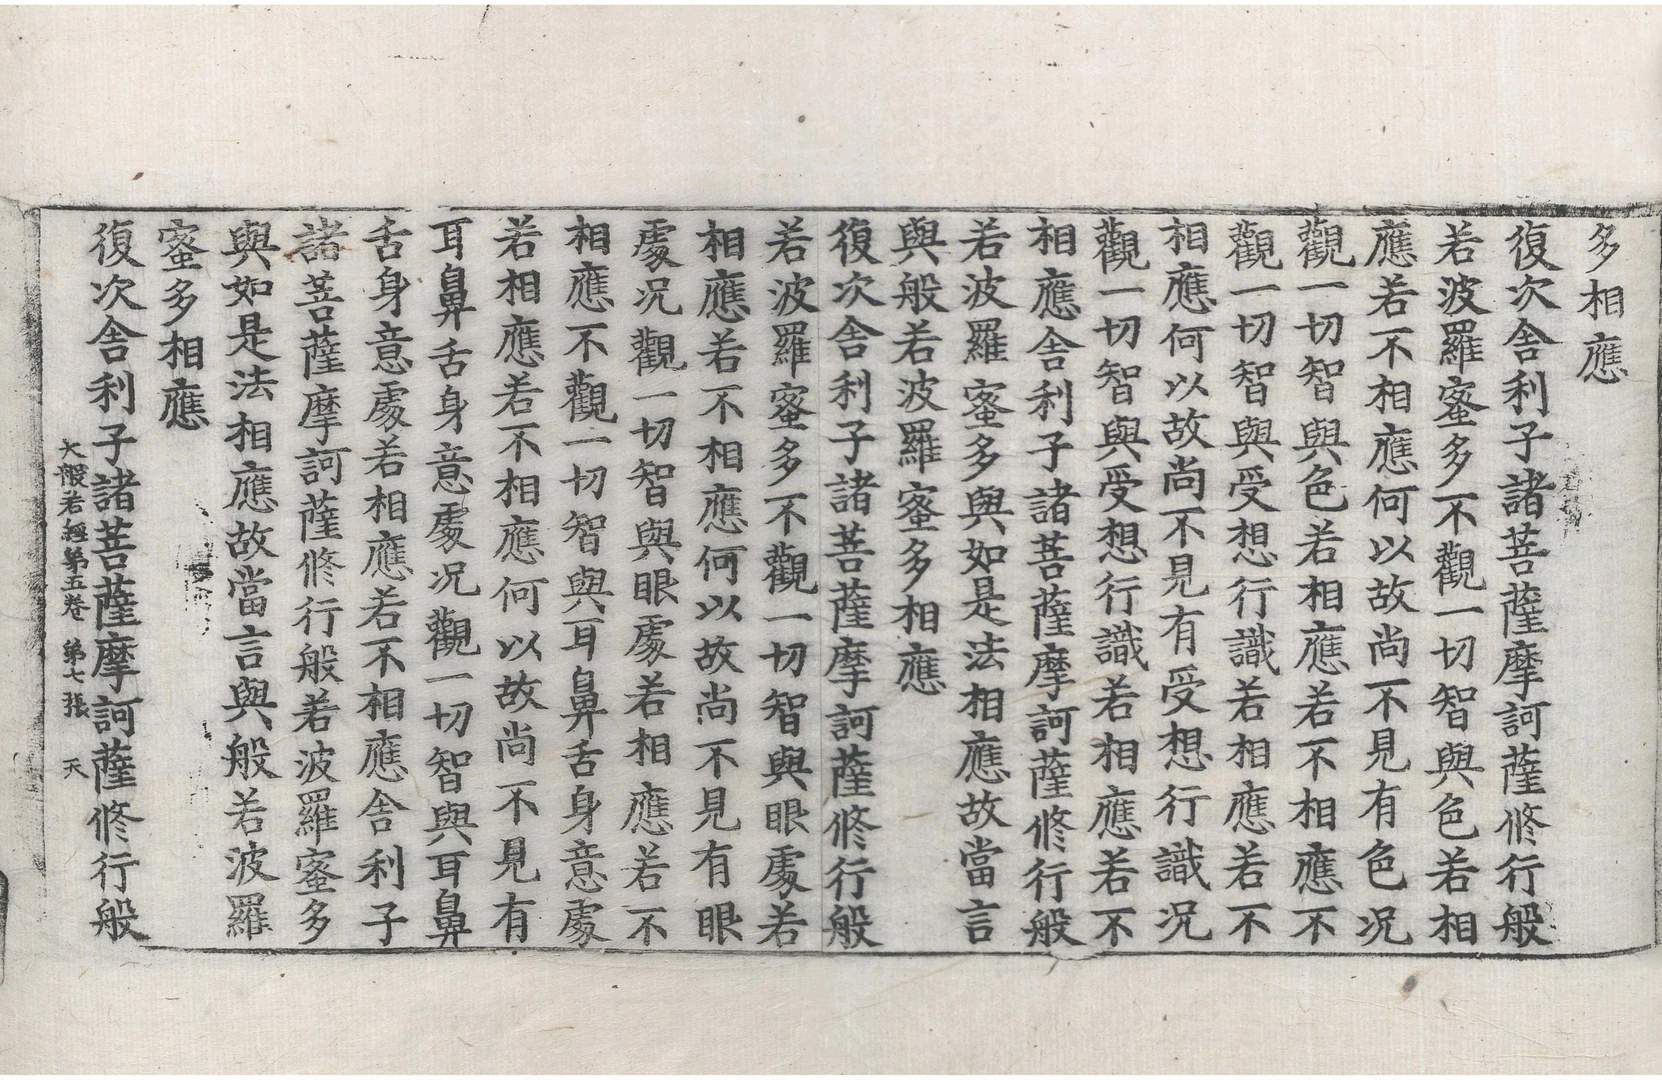 多相應
復次舍利子諸菩薩摩訶薩修行般
若波羅蜜多不觀一切智與色若相
應若不相應何以故尚不見有色況
觀一切智與色若相應若不相應不
觀一切智與受想行識若相應若不
相應何以故尚不見有受想行識況
觀一切智與受想行識若相應若不
相應舍利子諸菩薩摩訶薩修行般
若波羅蜜多與如是法相應故當言
與般若波羅蜜多相應
復次舍利子諸菩薩摩訶薩修行般
若波羅蜜多不觀一切智與眼處若
相應若不相應何以故尚不見有眼
處況觀一切智與眼處若相應若不
相應不觀一切智與耳鼻舌身意處
若相應若不相應何以故尚不見有
耳鼻舌身意處況觀一切智與耳鼻
舌身意處若相應若不相應舍利子
諸菩薩摩訶薩修行般若波羅蜜多
與如是法相應故當言與般若波羅
蜜多相應
復次舍利子諸菩薩摩訶薩修行般
大般若經第五卷 第七張 天